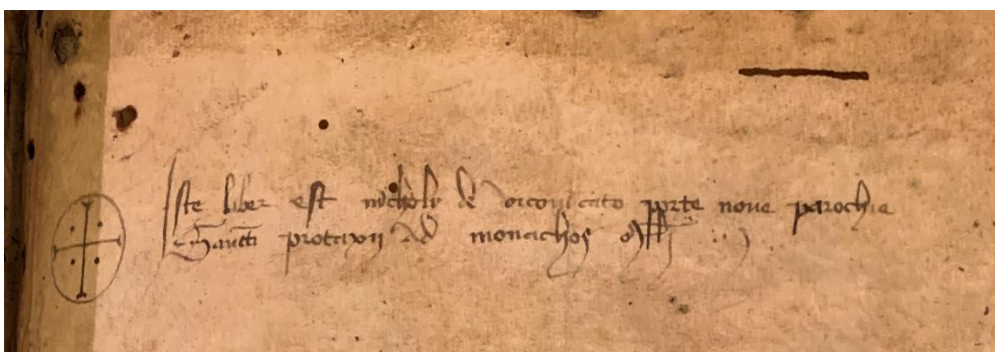 Iste liber est nicholy de vicomercato porte noue parochie
Sancti protaxii Ad monachos